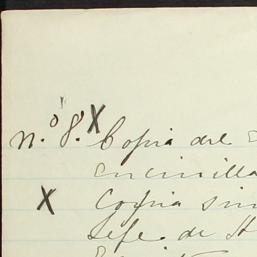 n.º 8. X Copia del
encinilla
X Copia sim
Jefe de H